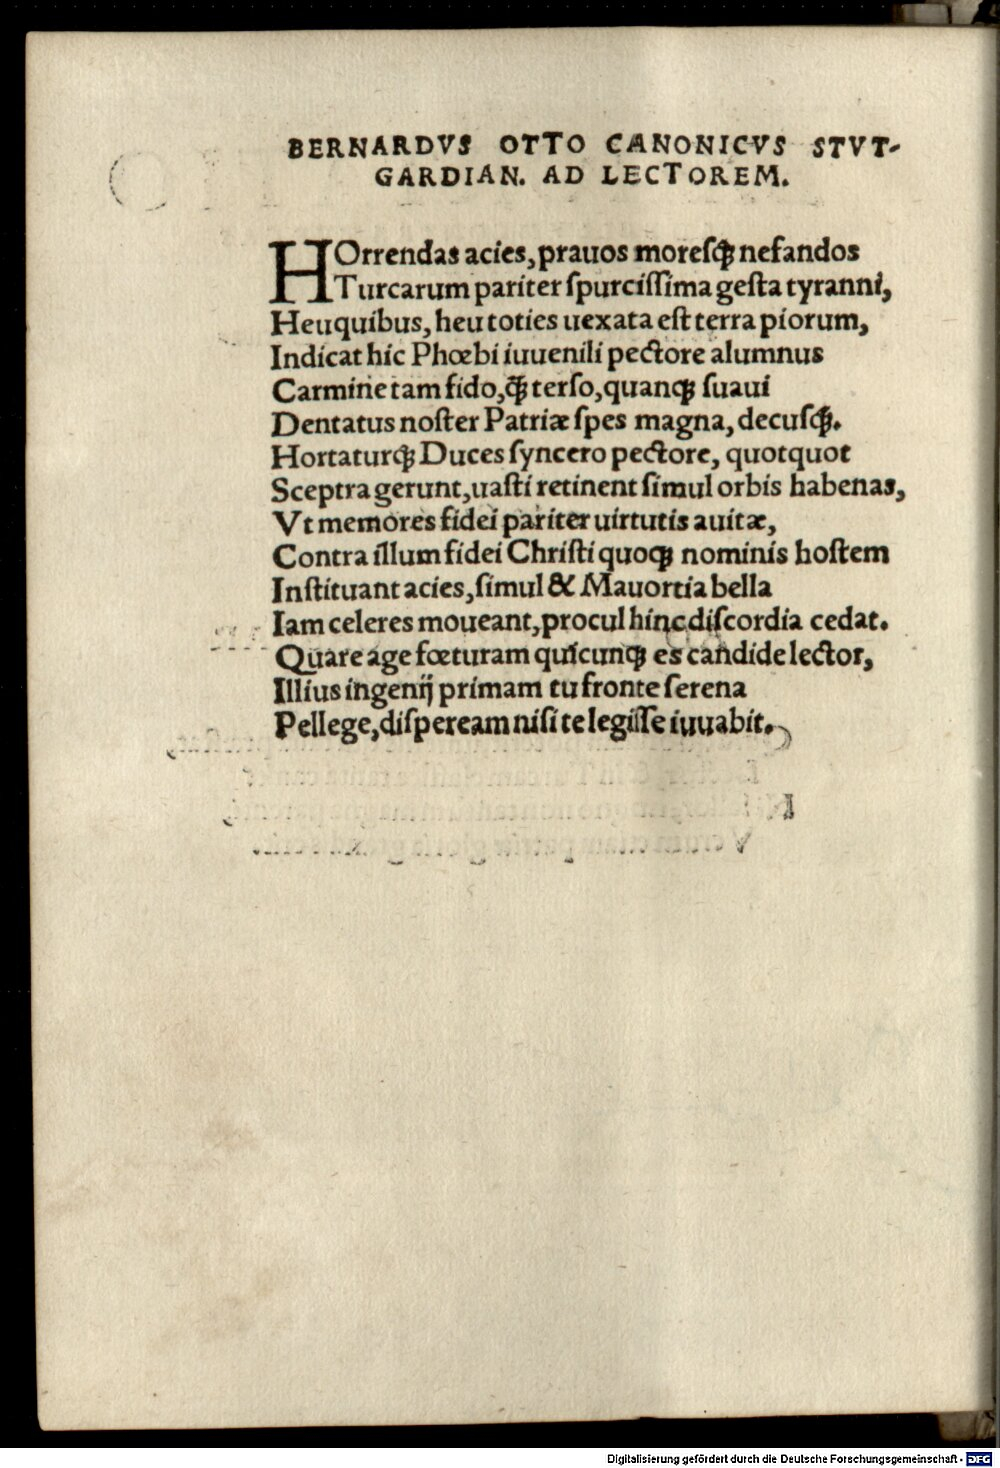 BERNARDVS OTTO CANONICVS STVT-
GARDIAN. AD LECTOREM.
HOrrendas acies, prauos moresq́ꝫ nefandos
Turcarum pariter spurcissima gesta tyranni,
Heu quibus, heu toties uexata est terra piorum,
Indicat hic Phœbi iuuenili pectore alumnus
Carmine tam fido, q̃ꝫ terso, quanqꝫ suaui
Dentatus noster Patriæ spes magna, decusq́ꝫ.
Hortaturq́ꝫ Duces syncero pectore, quotquot
Sceptra gerunt, uasti retinent simul orbis habenas,
Vt memores fidei pariter uirtutis auitæ,
Contra illum fidei Christi quoqꝫ nominis hostem
Instituant acies, simul & Mauortia bella
Iam celeres moueant, procul hinc discordia cedat.
Quare age fœturam quicunqꝫ es candide lector,
Illius ingenij primam tu fronte serena
Pellege, dispeream nisi te legisse iuuabit.
Digitalisierung gefördert durch die Deutsche Forschungsgemeinschaft - DFG